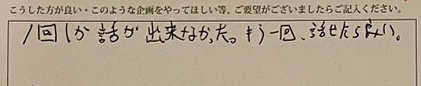 こうした方が良い・このような企画をやってほしい等、ご要望がございましたらご記入ください。
1回しか話が出来なかった。もう一回、話せたら良い。